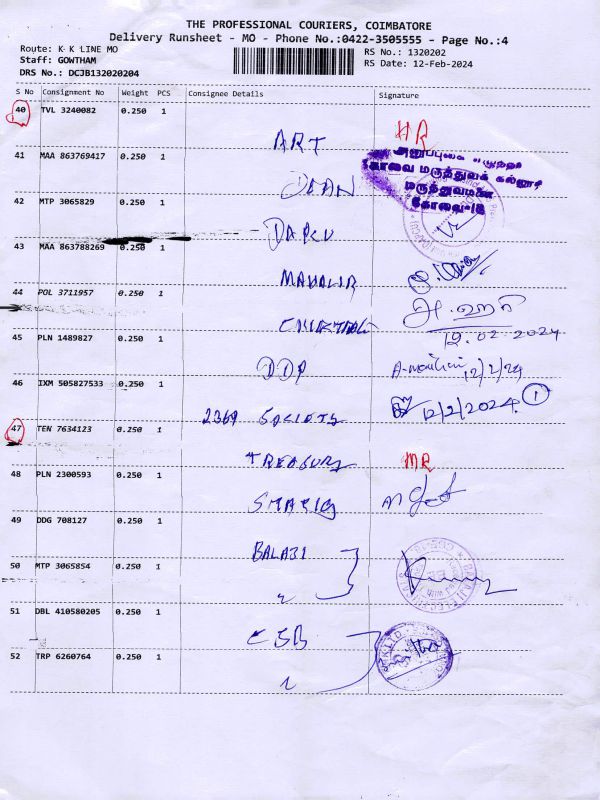 THE PROFESSIONAL COURIERS, COIMBATORE
Delivery Runsheet - MO - Phone No.:0422-3505555 - Page No.:4
Route: K K LINE MO
RS No.: 1320202
Staff: GOWTHAM
RS Date: 12-Feb-2024
DRS No.: DCJB132020204
S No Consignment No Weight PCS Consignee Details Signature
40 TVL 3240082 0.250 1
ART
41 MAA 863769417 0.250 1
கோவை மருத்துவக் கல்லூரி
மருத்துவமனை
கோவை-18
42 MTP 3065829 0.250 1
43 MAA 863788269 0.250 1
MAHALIR
44 POL 3711957 0.250 1
12.02.2024
45 PLN 1489827 0.250 1
DDP 12/2/24
46 IXM 505827533 0.250 1
2369 SOCIETY 12/2/2024. 1
47 TEN 7634123 0.250 1
TREASURY MR
48 PLN 2300593 0.250 1
49 DDG 708127 0.250 1
BALAJI
50 MTP 3065854 0.250 1
51 DBL 410580205 0.250 1
CSB
52 TRP 6260764 0.250 1